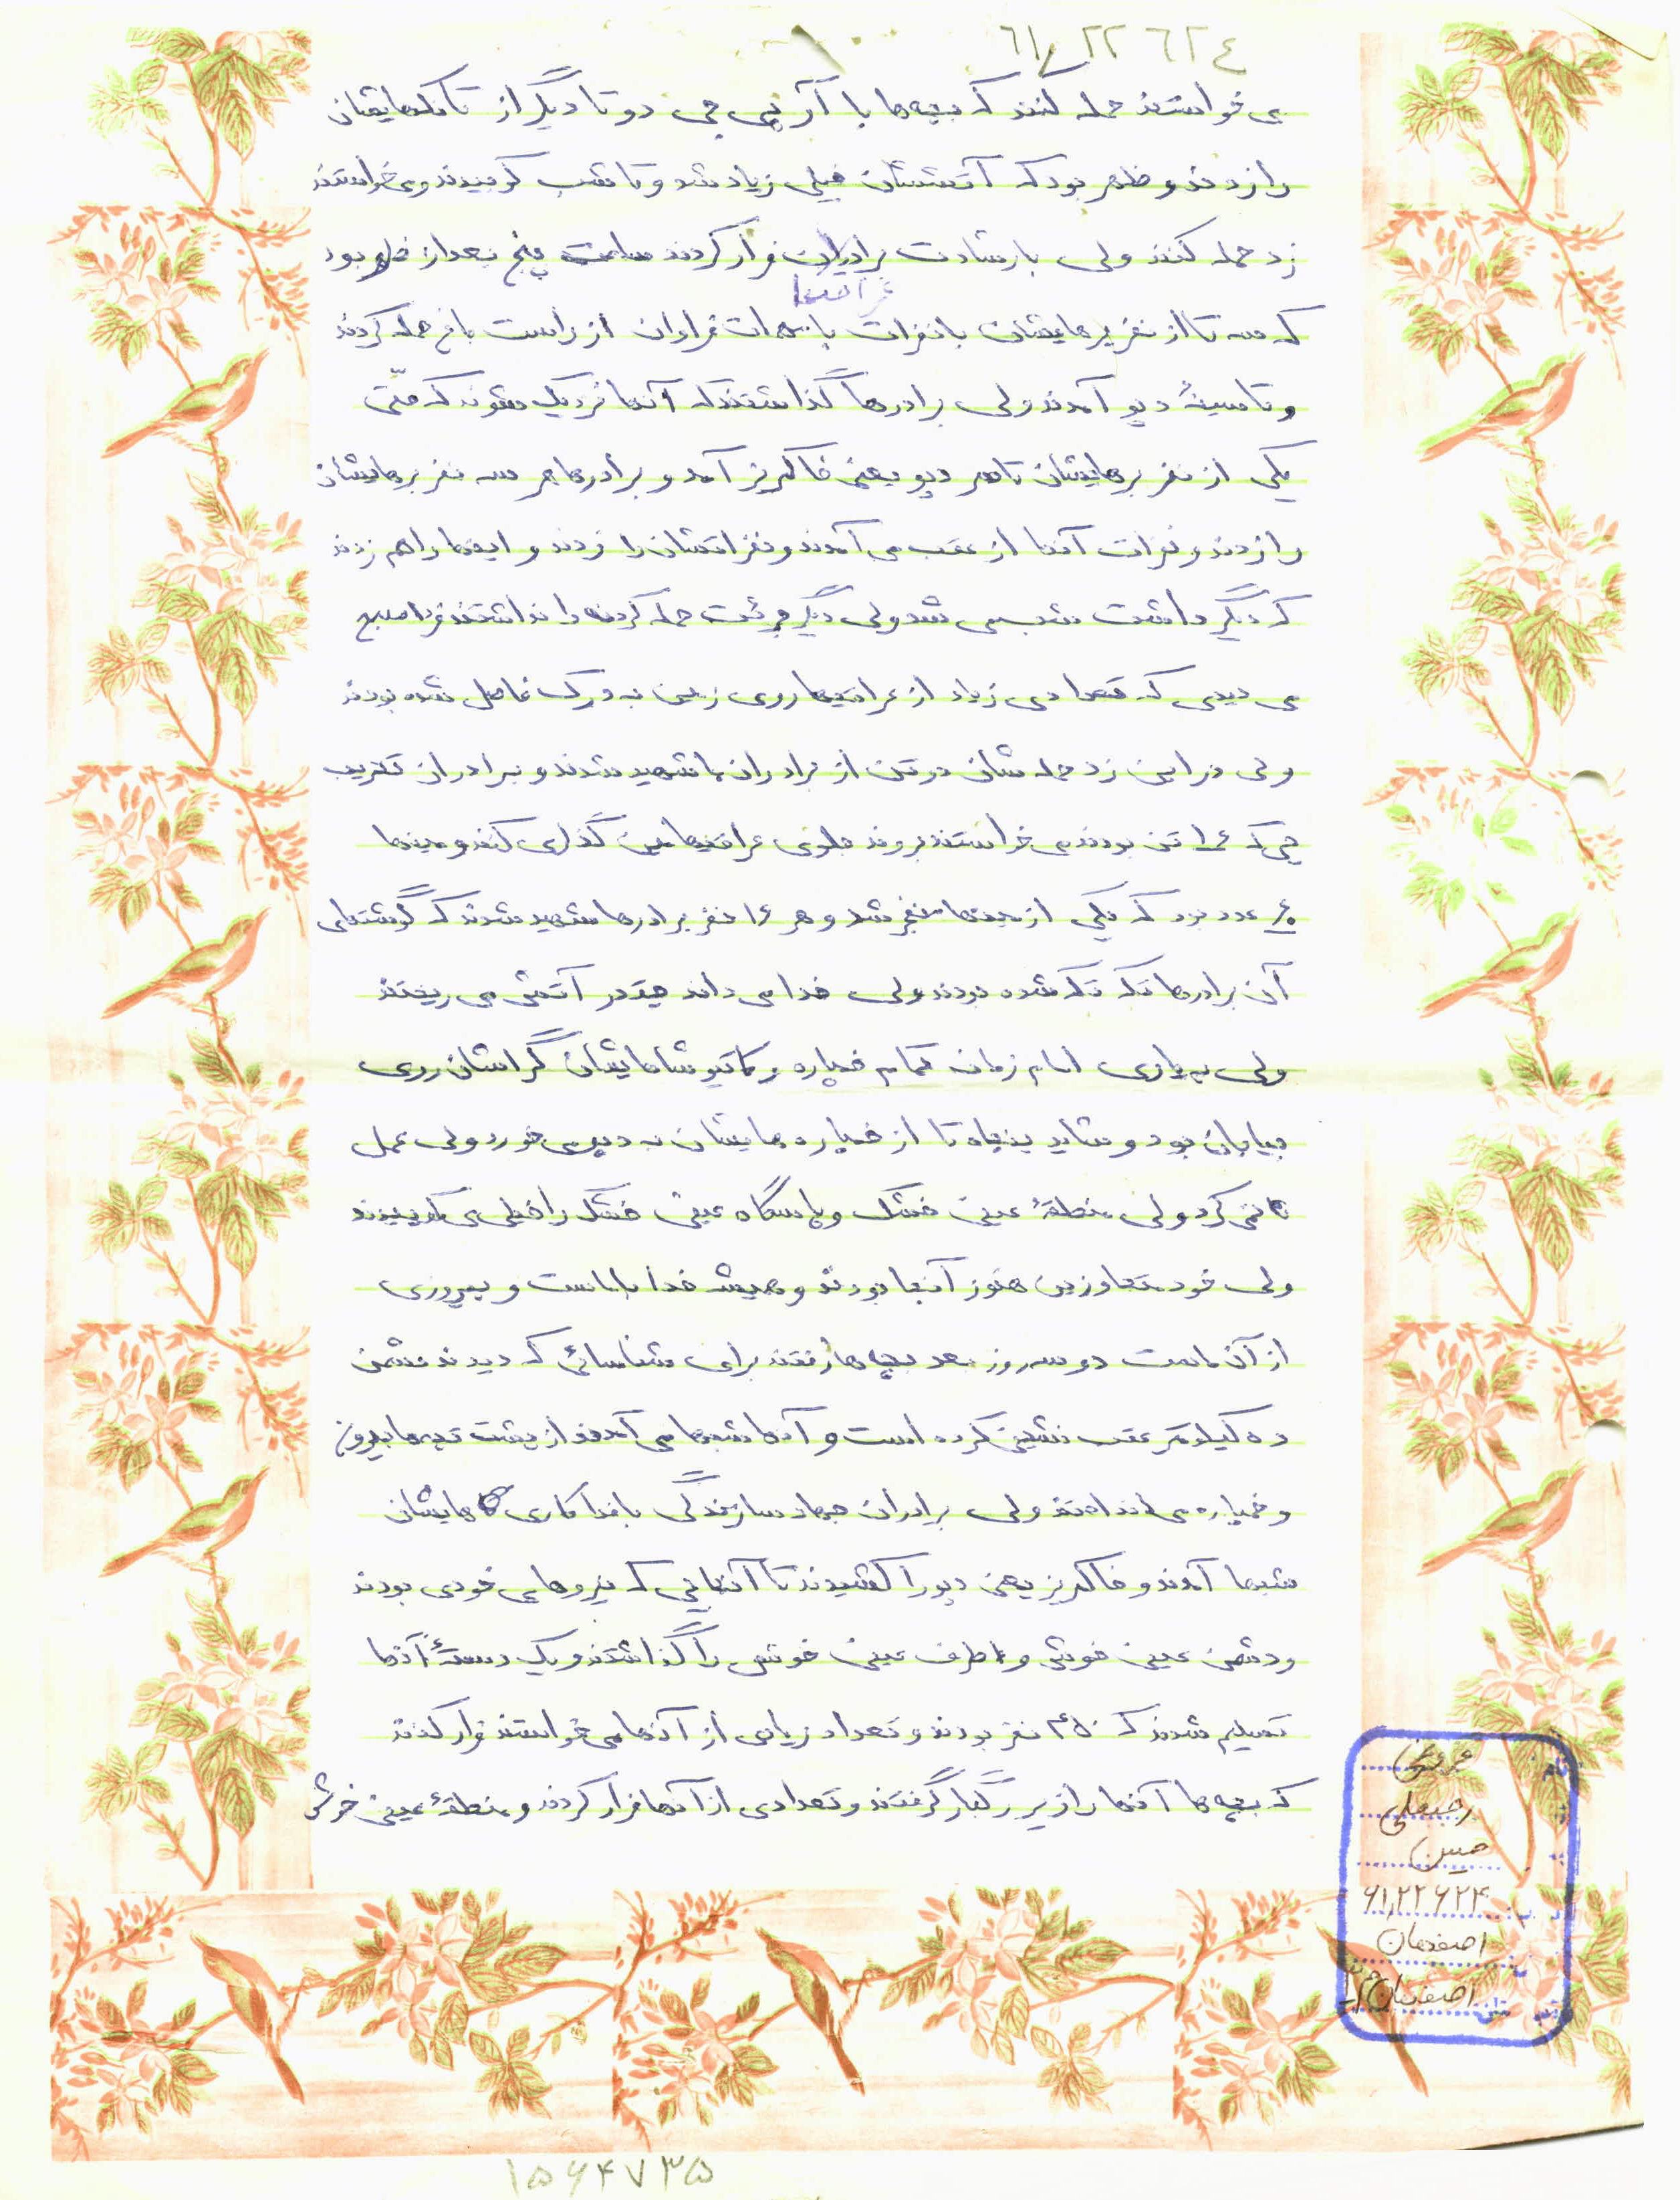 ٦١/٢٢٦٢٤
می خواستند حمله کنند که بچه‌ها با آر پی جی دو تا دیگر از تانکهایشان
را زدند و ظهر بود که آتششان خیلی زیاد شد و تا شب کوبیدند و می خواستند
زد حمله کنند ولی با رشادت برادران فرار کردند ساعت پنج بعداز ظهر بود
عراقیها
که سه تا از نفربرهایشان با نفرات با مهمات فراوان از راست باغ حمله کردند
و تا سینۀ دپو آمدند ولی برادرها گذاشتند که آنها نزدیک شوند که حتّی
یکی از نفربرهایشان تا سر دپو یعنی خاکریز آمد و برادرها هر سه نفربرهایشان
را زدند و نفرات آنها از عقب می آمدند و نفراتشان را زدند و اینها را هم زدند
که دیگر داشت شب می شد ولی دیگر جرئت حمله کردن را نداشتند فردا صبح
می دیدی که تعدادی زیاد از عراقیها روی زمین به درک واصل شده بودند
ولی در این زد حمله شان دو تن از برادران ما شهید شدند و برادران تخریب
چی که ۱۶ تن بودند می خواستند بروند جلوی عراقیها مین گذاری کنند و مینها
۶۰ عدد بود که یکی از مینها منفجر شد و هر ۱۶ نفر برادرها شهید شدند که گوشتهای
آن برادرها تکه تکه شده بودند ولی خدا می داند چقدر آتش می ریختند
ولی به یاری امام زمان تمام خمپاره و کاتیوشاهایشان گراشان روی
بیابان بود و شاید پنجاه تا از خمپاره هایشان به دپو می خورد ولی عمل
نمی کرد ولی منطقۀ عین خشک و پاسگاه عین خشک را خیلی می کوبیدند
ولی خود متجاوزین هنوز آنجا بودند و همیشه خدا با ماست و پیروزی
از آن ماست دو سه روز بعد بچه ها رفتند برای شناسائی که دیدند دشمن
ده کیلومتر عقب نشینی کرده است و آنها شبها می آمدند از پشت تپه‌ها بیرون
و خمپاره می انداختند ولی برادران جهاد سازندگی با فداکاری هایشان
شبها آمدند و خاکریز یعنی دپو را کشیدند تا آنجایی که نیروهای خودی بودند
و دشمن عین خوش و اطراف عین خوش را گذاشتند و یک دستۀ آنها
تسلیم شدند که ۴۵۰ نفر بودند و تعداد زیادی از آنها می خواستند فرار کنند
که بچه ها آنها را زیر رگبار گرفتند و تعدادی از آنها فرار کردند و منطقۀ عین خوش
نام:
رجبعلی
حسین
۶۱٫۲۲۶۲۴
اصفهان
اصفهان
۱۵۶۴۷۳۵